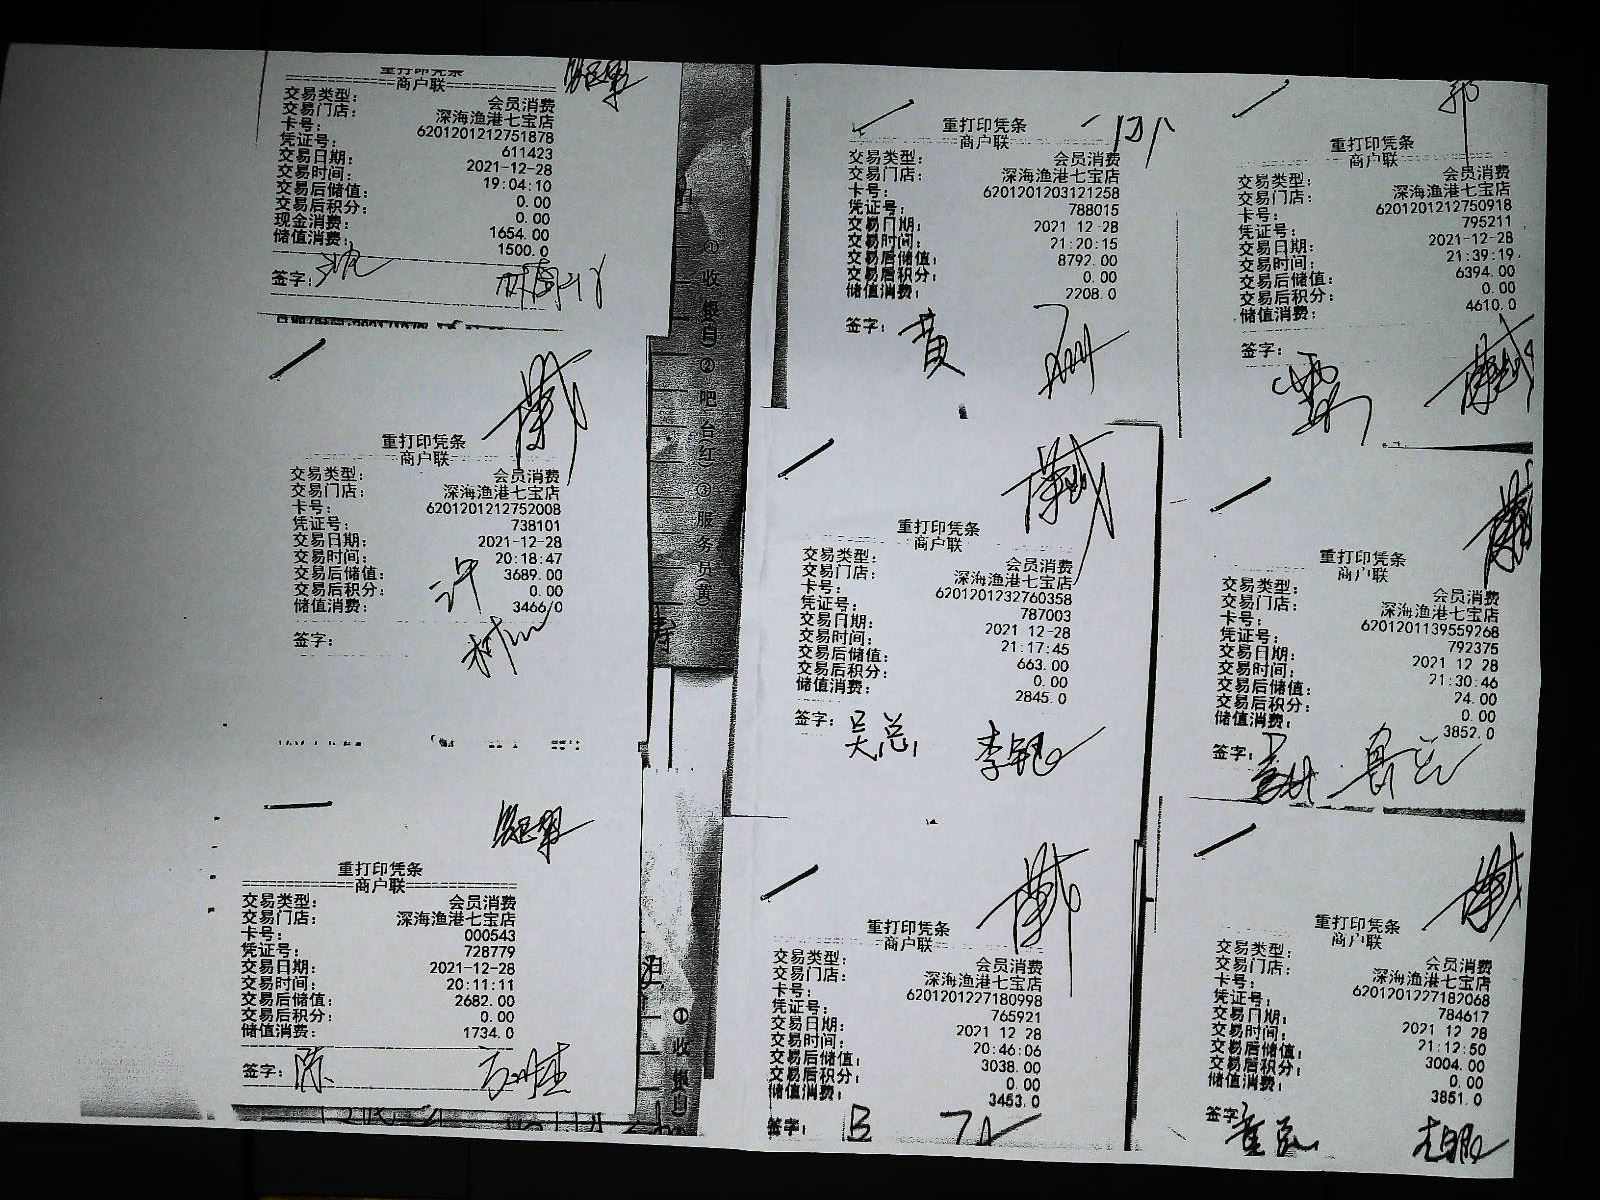 重打印凭条
商户联
交易类型： 会员消费
交易门店： 深海渔港七宝店
卡号： 6201201212751878
凭证号： 611423
交易日期： 2021-12-28
交易时间： 19:04:10
交易后储值： 0.00
交易后积分： 0.00
现金消费： 1654.00
储值消费： 1500.0
签字：
重打印凭条
商户联
交易类型： 会员消费
交易门店： 深海渔港七宝店
卡号： 6201201212752008
凭证号： 738101
交易日期： 2021-12-28
交易时间： 20:18:47
交易后储值： 3689.00
交易后积分： 0.00
储值消费： 3466.0
签字： 许
重打印凭条
商户联
交易类型： 会员消费
交易门店： 深海渔港七宝店
卡号： 000543
凭证号： 728779
交易日期： 2021-12-28
交易时间： 20:11:11
交易后储值： 2682.00
交易后积分： 0.00
储值消费： 1734.0
签字： 陈
①收银(白)②吧台(红)③服务员(黄)
①收银(白)
重打印凭条
商户联
交易类型： 会员消费
交易门店： 深海渔港七宝店
卡号： 6201201203121258
凭证号： 788015
交易日期： 2021 12-28
交易时间： 21:20:15
交易后储值： 8792.00
交易后积分： 0.00
储值消费： 2208.0
签字： 黄
重打印凭条
商户联
交易类型： 会员消费
交易门店： 深海渔港七宝店
卡号： 6201201232760358
凭证号： 787003
交易日期： 2021 12-28
交易时间： 21:17:45
交易后储值： 663.00
交易后积分： 0.00
储值消费： 2845.0
签字： 吴总
重打印凭条
商户联
交易类型： 会员消费
交易门店： 深海渔港七宝店
卡号： 6201201227180998
凭证号： 765921
交易日期： 2021 12 28
交易时间： 20:46:06
交易后储值： 3038.00
交易后积分： 0.00
储值消费： 3453.0
签字：
重打印凭条
商户联
交易类型： 会员消费
交易门店： 深海渔港七宝店
卡号： 6201201212750918
凭证号： 795211
交易日期： 2021-12-28
交易时间： 21:39:19
交易后储值： 6394.00
交易后积分： 0.00
储值消费： 4610.0
签字：
重打印凭条
商户联
交易类型： 会员消费
交易门店： 深海渔港七宝店
卡号： 6201201139559268
凭证号： 792375
交易日期： 2021 12 28
交易时间： 21:30:46
交易后储值： 24.00
交易后积分： 0.00
储值消费： 3852.0
签字：
重打印凭条
商户联
交易类型： 会员消费
交易门店： 深海渔港七宝店
卡号： 6201201227182068
凭证号： 784617
交易日期： 2021 12 28
交易时间： 21:12:50
交易后储值： 3004.00
交易后积分： 0.00
储值消费： 3851.0
签字：